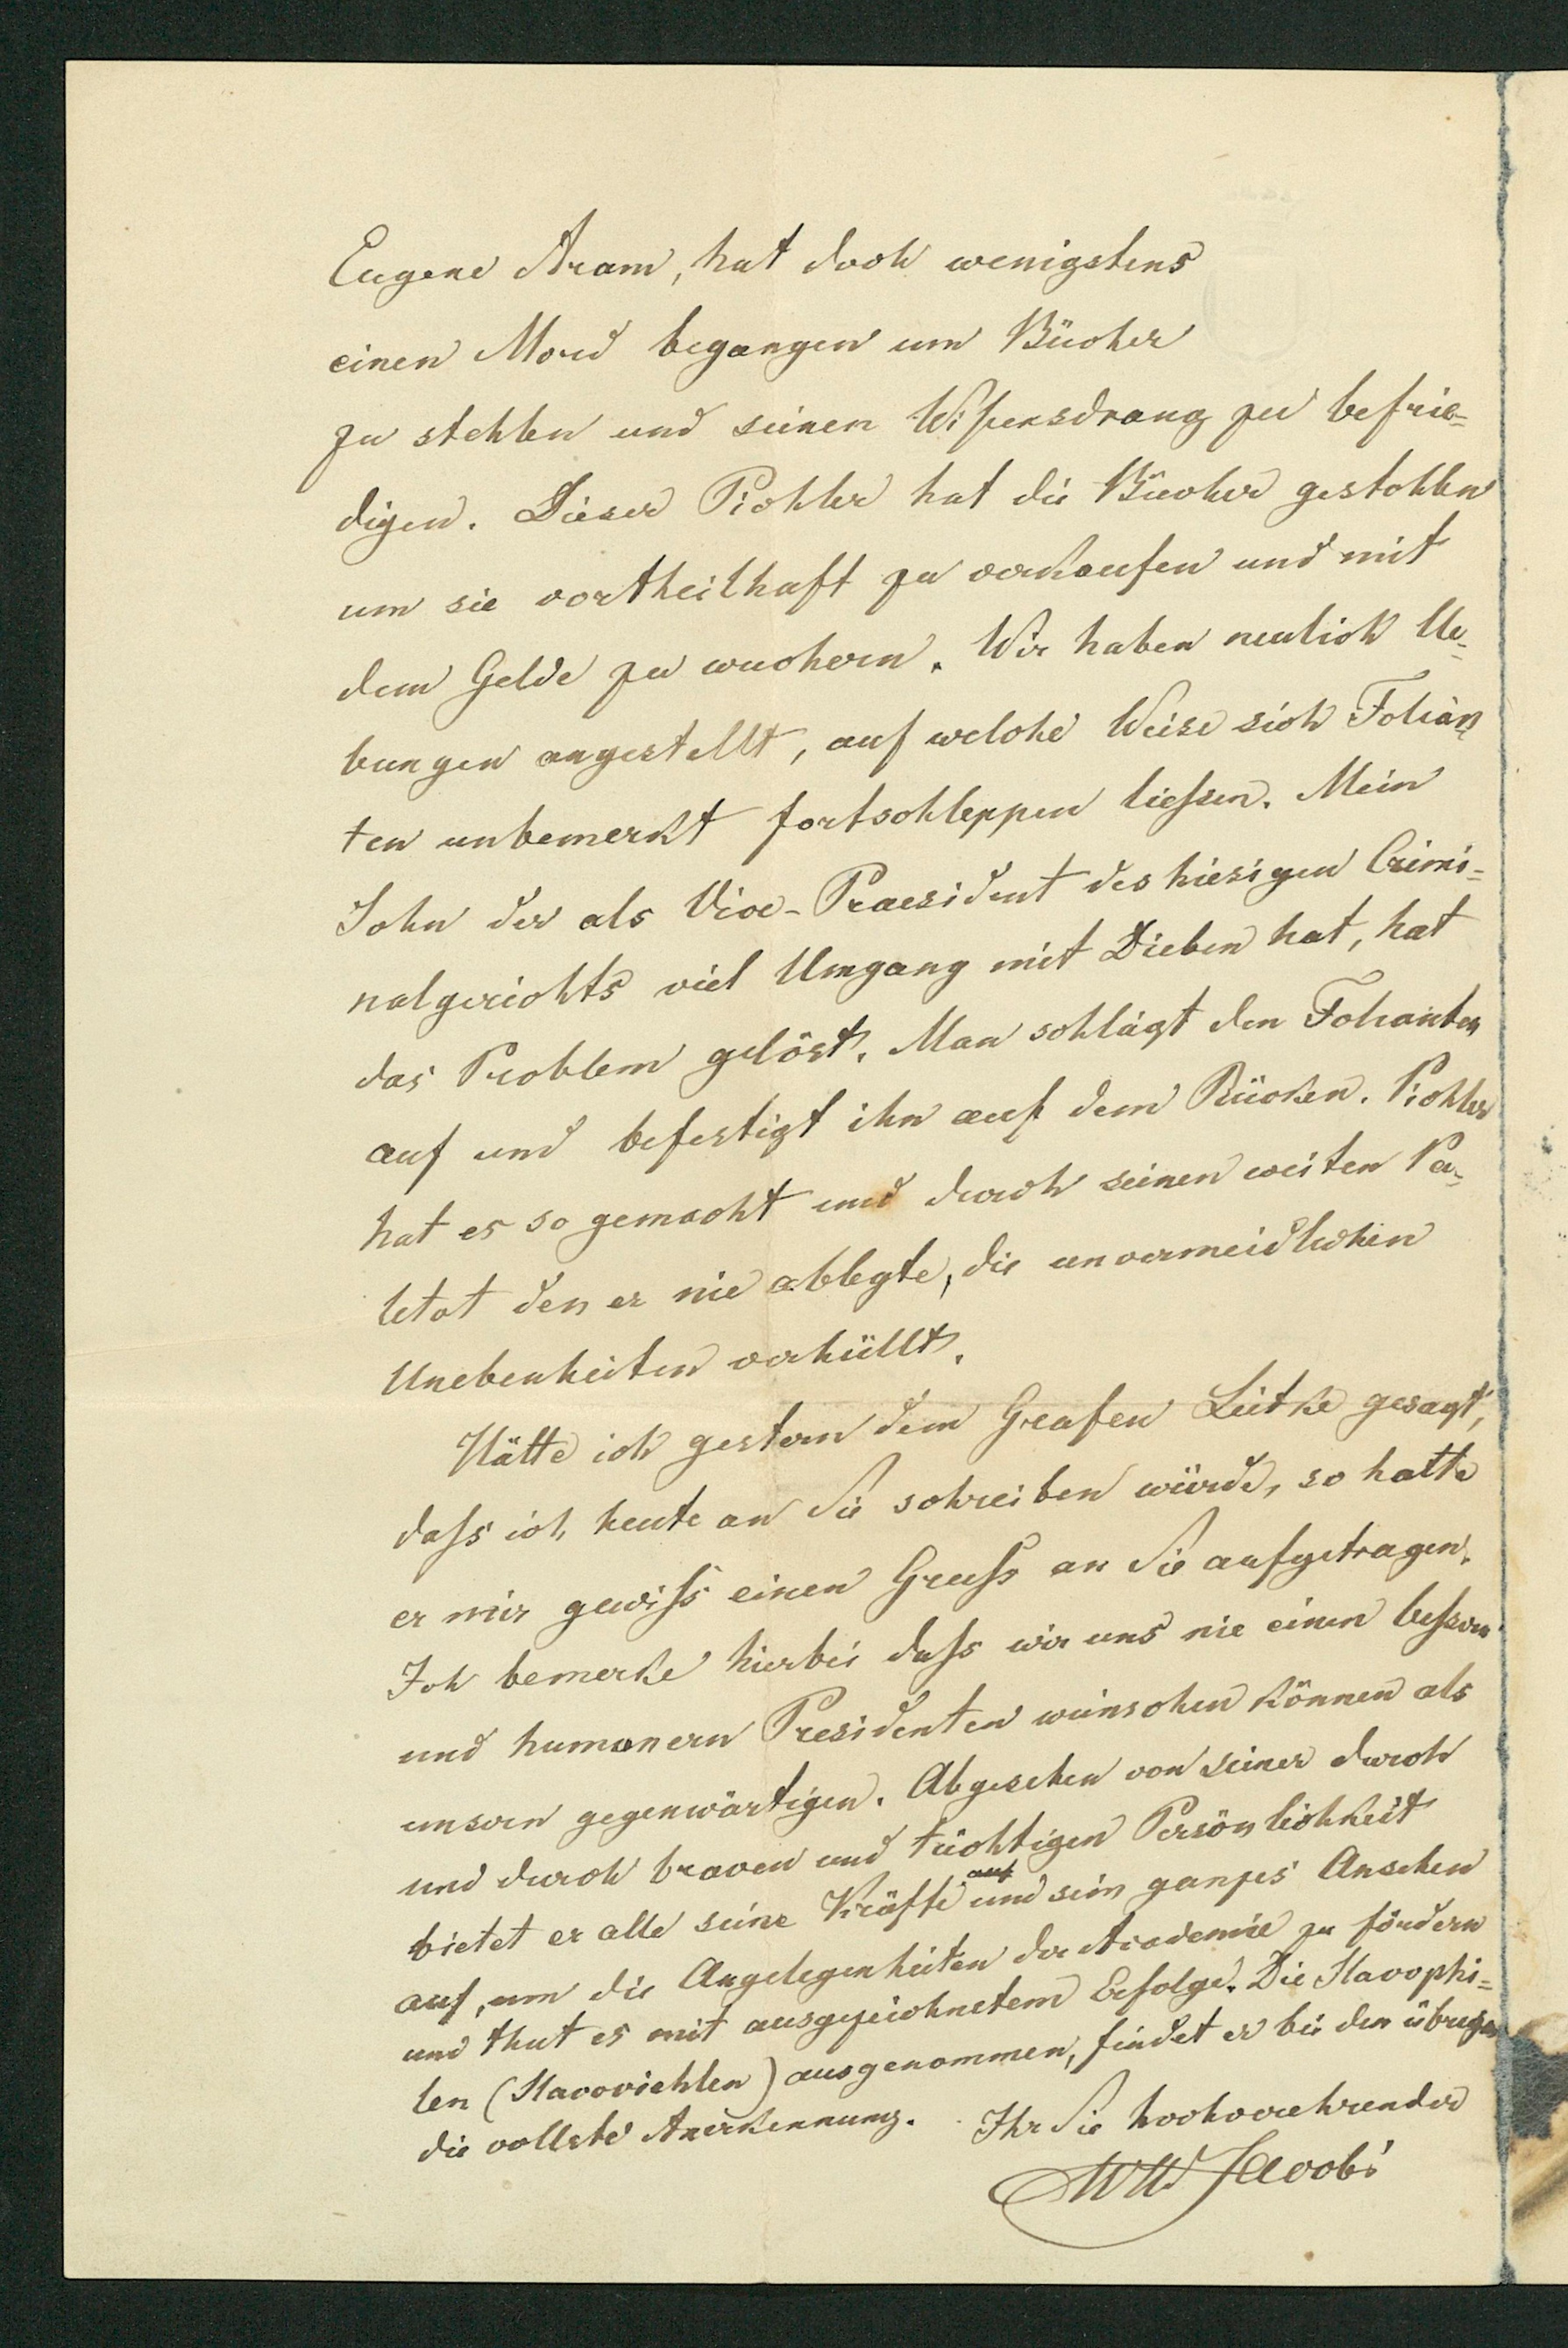 Eugene Aram, hat doch wenigstens
einen Mord begangen um Bücher
zu stehlen und seinen Wißensdrang zu befrie=
digen. Dieser Pichler hat die Bücher gestohlen
um sie vortheilhaft zu verkaufen und mit
dem Gelde zu wuchern. Wir haben neulich Ue=
bungen angestellt, auf welche Weise sich Folian
ten unbemerkt fortschleppen ließen. Mein
Sohn der als Vice-Praesident des hiesigen Crimi=
nalgerichts viel Umgang mit Dieben hat, hat
das Problem gelöst. Man schlägt den Folianten
auf und befestigt ihn auf dem Rücken. Pichler
hat es so gemacht und durch seinen weiten Pa=
letot den er nie ablegte, die unvermeidlichen
Unebenheiten verhüllt.
Hätte ich gestern dem Grafen Lütke gesagt,
daß ich heute an Sie schreiben würde, so hatte
er mir gewiß einen Gruß an Sie aufgetragen.
Ich bemerke hierbei daß wir uns nie einen beßern
und humanern Presidenten wünschen können als
unsern gegenwärtigen. Abgesehen von seiner durch
und durch braven und tüchtigen Persönlichkeit
bietet er alle seine Kräfte auf und sein ganzes Ansehen
auf, um die Angelegenheiten der Academie zu fördern
und thut es mit ausgezeichnetem Erfolge. Die Slavophi=
len (Slavoviehlen) ausgenommen, findet er bei den übrigen
die vollste Anerkennung. Ihr Sie hochverehrender
MHJacobi